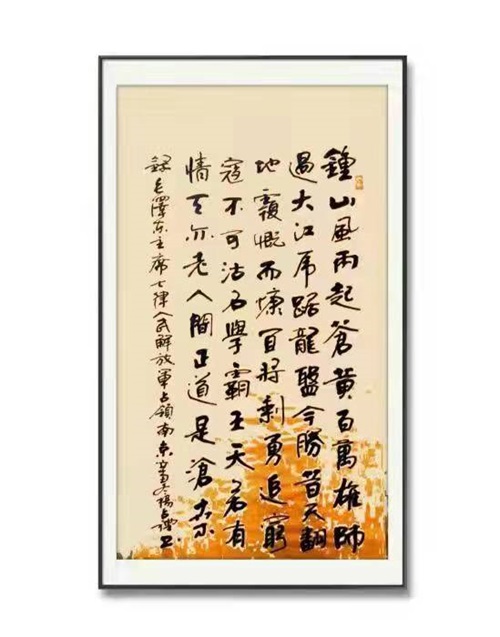 鍾山風雨起蒼黄百萬雄師
過大江虎踞龍盤今勝昔天翻
地覆慨而慷宜將剩勇追窮
寇不可沽名學霸王天若有
情天亦老人間正道是滄桑
錄毛澤东主席七律人民解放軍占領南京辛丑冬楊占书